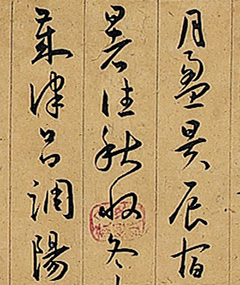 月盈昃辰宿
暑往秋收冬
歲律召調陽